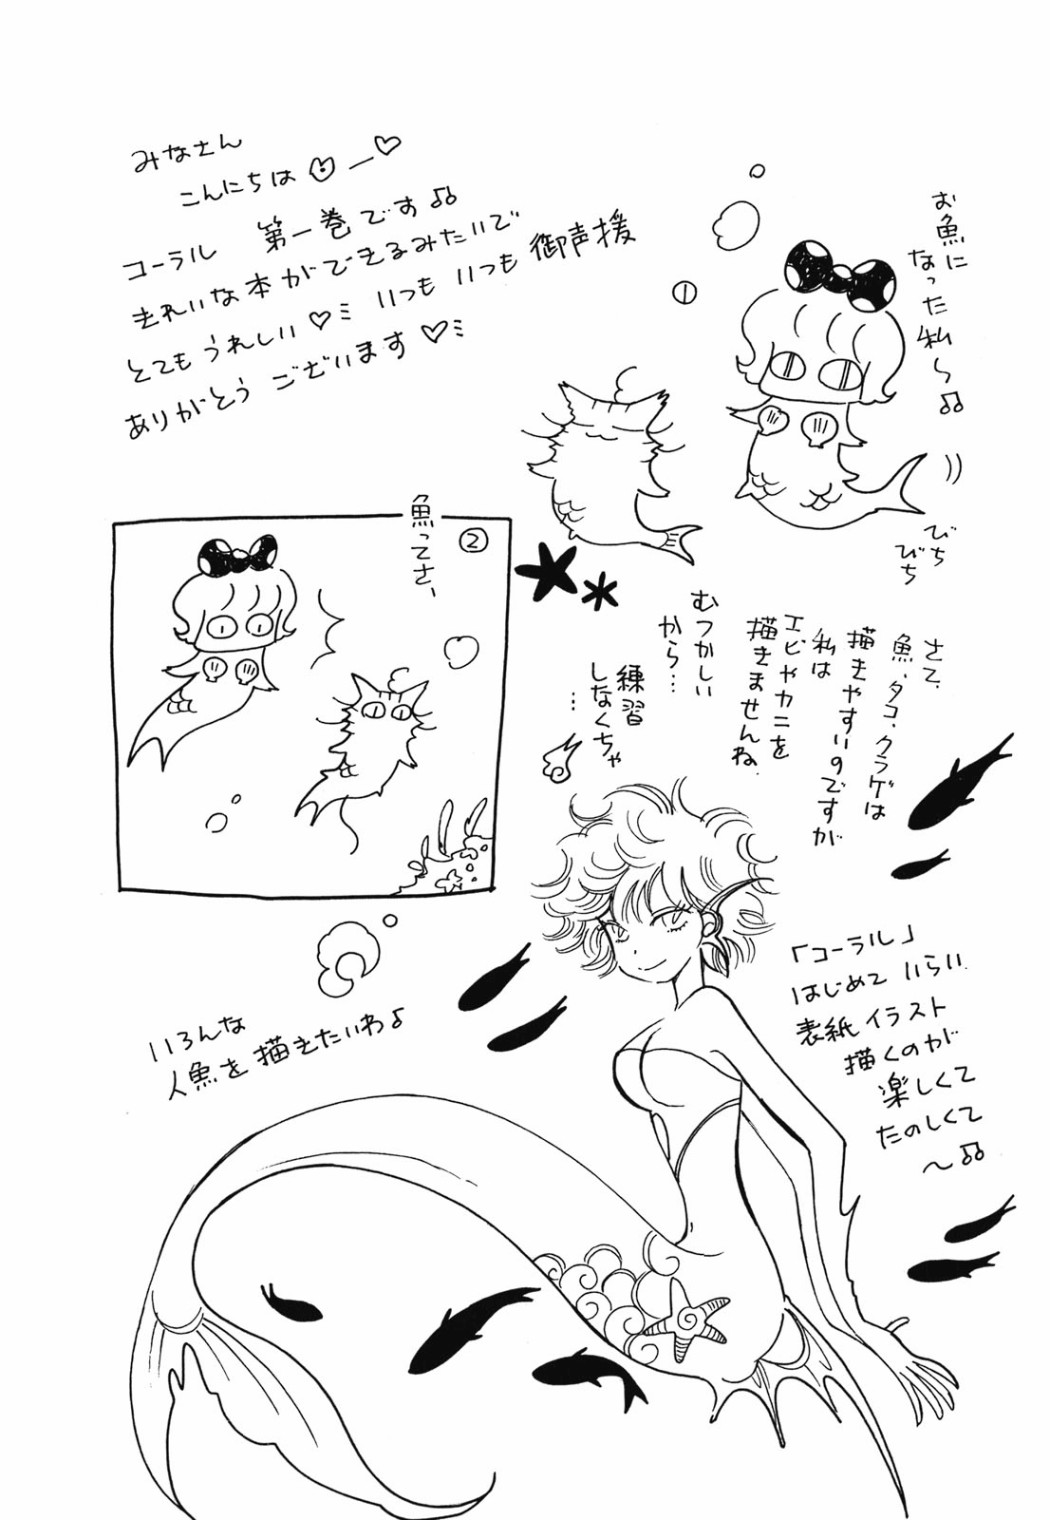 みなさん
こんにちは ー♡
コーラル 第一巻です♫
きれいな本ができるみたいで
とてもうれしい♡ミ いつも いつも 御声援
ありがとう ございます♡ミ
お魚に
なった私ら♫
①
びち
びち
②
魚ってさ、
さて、
魚、タコ、クラゲは
描きやすいのですが
私は
エビやカニを
描きませんね。
むつかしい
から…
練習
しなくちゃ
…
「コーラル」
はじめて いらい
表紙イラスト
描くのが
楽しくて
たのしくて
〜♫
いろんな
人魚を描きたいわ♪